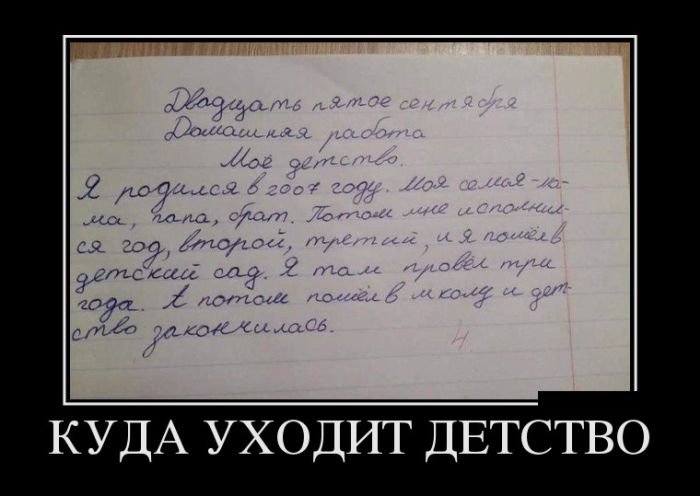 Двадцать пятое сентября
Домашняя работа
Моё детство.
Я родился в 2007 году. Моя семья-ма-
ма, папа, брат. Потом мне исполнил-
ся год, второй, третий, и я пошёл в
детский сад. Я там провёл три
года. А потом пошёл в школу и дет-
ство закончилась.
4
КУДА УХОДИТ ДЕТСТВО